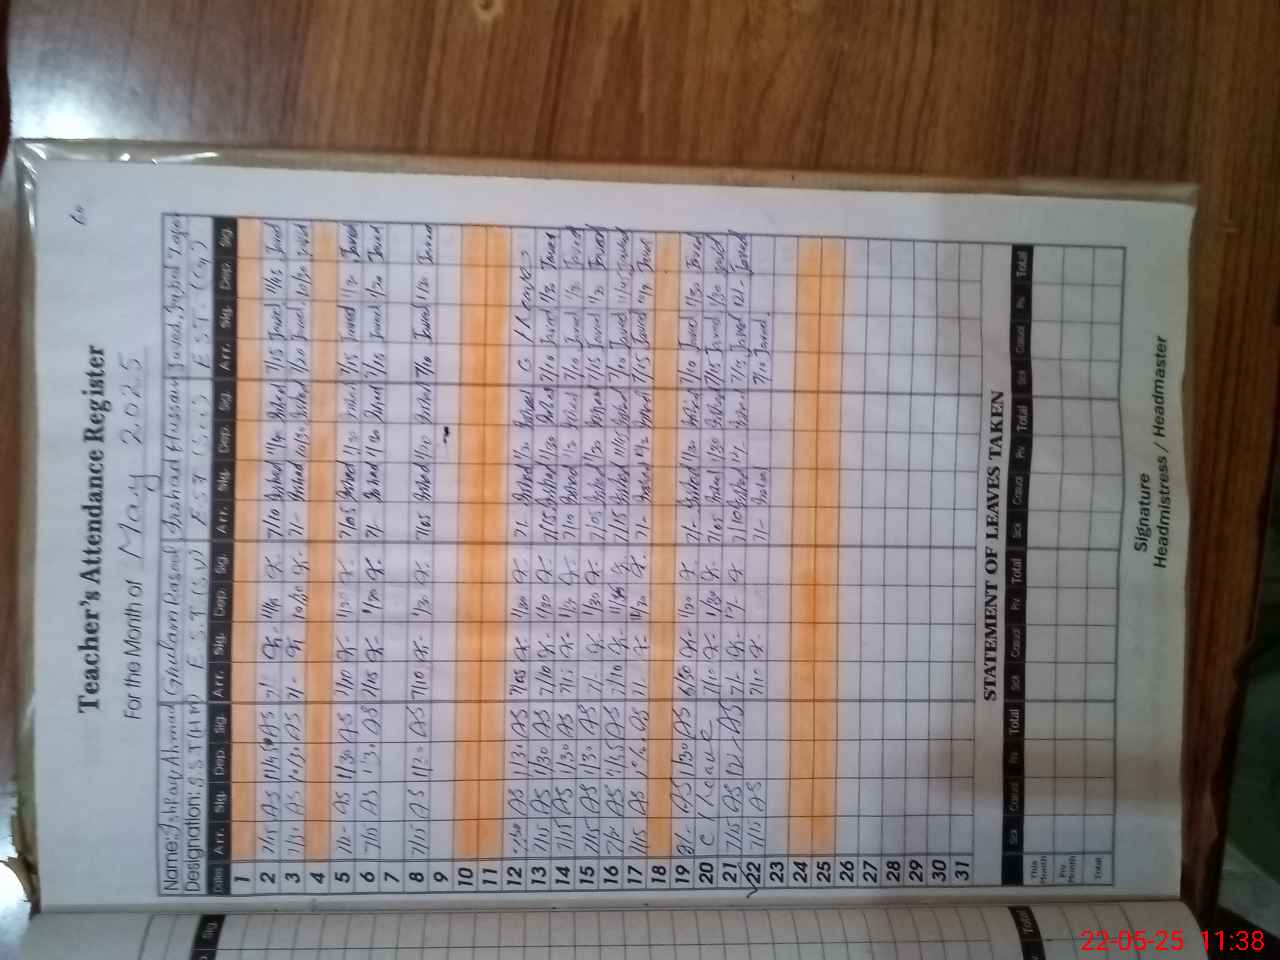 60
Teacher's Attendance Register
For the Month of May 2025
Name: Ishfaq Ahmad Ghulam Rasool Irshad Hussain Javed Iqbal
Designation: S.S.T (HM) E.S.T (S.V) E.S.T (Sci) E S T (Cq)
Dates Arr. Sig. Dep. Sig. Arr. Sig. Dep. Sig. Arr. Sig. Dep. Sig. Arr. Sig. Dep. Sig.
1
2 7/15 AS 11/45 AS 7/- 11/45 7/10 Irshad Irshad 7/15 Javed 11/45 Javed
3 AS 10/30 AS 7/- 10/30 7/- Irshad 10/30 Irshad 7/20 Javed 10/30 Javed
4
5 7/- AS 1/30 AS 7/10 1/30 7/05 Irshad 1/30 Irshad 7/15 Javed 1/30 Javed
6 7/15 AS 1/30 AS 7/05 1/30 7/- Irshad 1/30 Irshad 7/15 Javed 1/30 Javed
7
8 7/15 AS 1/30 AS 7/10 1/30 7/05 Irshad 1/30 Irshad 7/10 Javed 1/30 Javed
9
10
11
12 AS 1/30 AS 7/05 1/30 7/- Irshad 1/30 Irshad C
13 7/15 AS 1/30 AS 7/10 1/30 7/15 Irshad 1/30 Irshad 7/10 Javed 1/30 Javed
14 7/15 AS 1/30 AS 7/15 1/30 7/10 Irshad 1/30 Irshad 7/10 Javed 1/30 Javed
15 7/15 AS 1/30 AS 7/- 1/30 7/05 Irshad 1/30 Irshad 7/15 Javed 1/30 Javed
16 AS AS 7/10 7/15 Irshad 11/45 Irshad 7/10 Javed 11/45 Javed
17 7/15 AS AS 7/- 7/- Irshad Irshad 7/15 Javed Javed
18
19 8/- AS 1/30 AS 6/50 1/30 7/- Irshad 1/30 Irshad 7/10 Javed 1/30 Javed
20 C / Leave 7/10 1/30 7/05 Irshad 1/30 Irshad 7/15 Javed 1/30 Javed
21 7/15 AS 12/- AS 7/- 12/- 7/10 Irshad 12/- Irshad 7/15 Javed 12/- Javed
22 7/15 AS 7/10 7/- Irshad 7/10 Javed
23
24
25
26
27
28
29
30
31
STATEMENT OF LEAVES TAKEN
Sick Casual Pv Total Sick Casual Pv Total Sick Casual Pv Total Sick Casual Pv Total
This Month
Pv Month
Total
Signature
Headmistress / Headmaster
Sig
Total
22-05-25 11:38